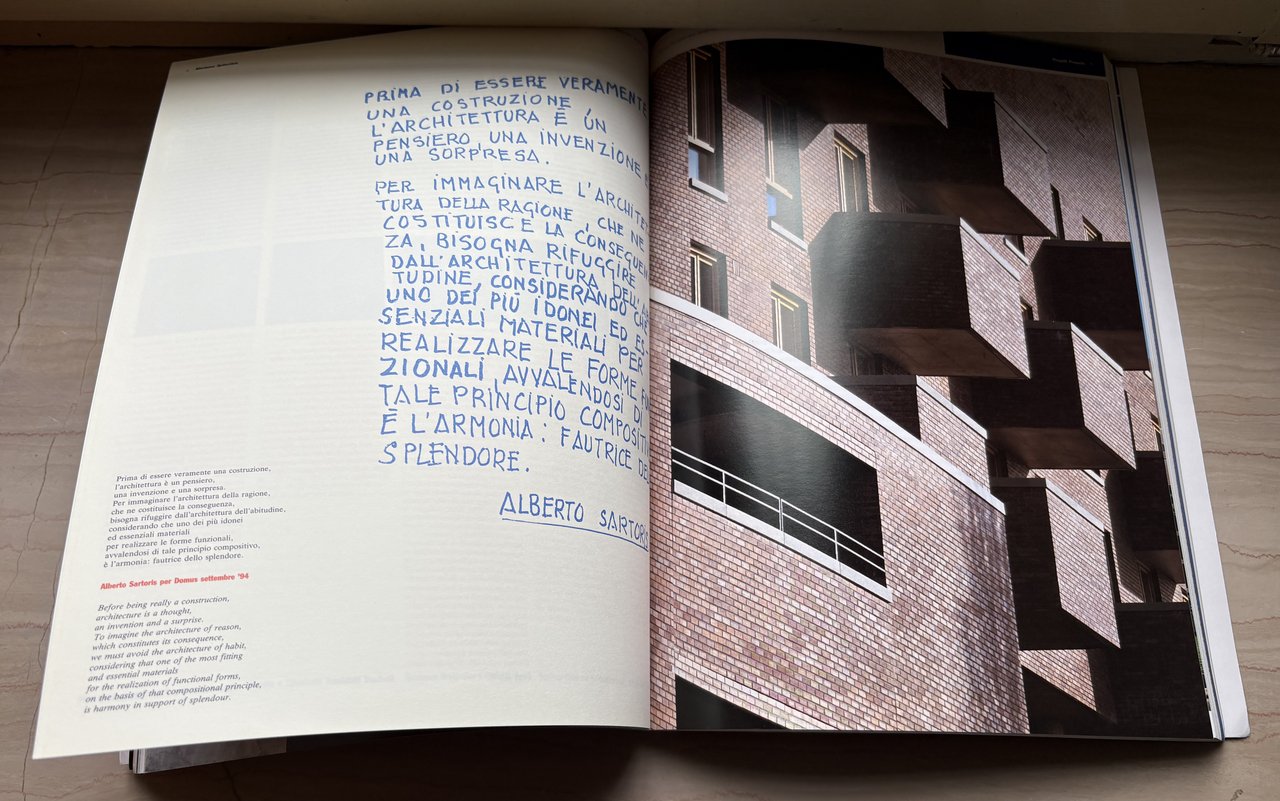 Alberto Sartoris
PRIMA DI ESSERE VERAMENTE
UNA COSTRUZIONE,
L'ARCHITETTURA È UN
PENSIERO, UNA INVENZIONE E
UNA SORPRESA.
PER IMMAGINARE L'ARCHITET
TURA DELLA RAGIONE, CHE NE
COSTITUISCE LA CONSEGUEN
ZA, BISOGNA RIFUGGIRE
DALL'ARCHITETTURA DELL'
TUDINE, CONSIDERANDO CHE
UNO DEI PIÙ IDONEI ED ES-
SENZIALI MATERIALI PER
REALIZZARE LE FORME FU
ZIONALI, AVVALENDOSI DI
TALE PRINCIPIO COMPOSITIV
È L'ARMONIA: FAUTRICE DEL
SPLENDORE.
ALBERTO SARTORIS
Prima di essere veramente una costruzione,
l'architettura è un pensiero,
una invenzione e una sorpresa.
Per immaginare l'architettura della ragione,
che ne costituisce la conseguenza,
bisogna rifuggire dall'architettura dell'abitudine,
considerando che uno dei più idonei
ed essenziali materiali
per realizzare le forme funzionali,
avvalendosi di tale principio compositivo,
è l'armonia: fautrice dello splendore.
Alberto Sartoris per Domus settembre '94
Before being really a construction,
architecture is a thought,
an invention and a surprise.
To imagine the architecture of reason,
which constitutes its consequence,
we must avoid the architecture of habit,
considering that one of the most fitting
and essential materials
for the realization of functional forms,
on the basis of that compositional principle,
is harmony in support of splendour.